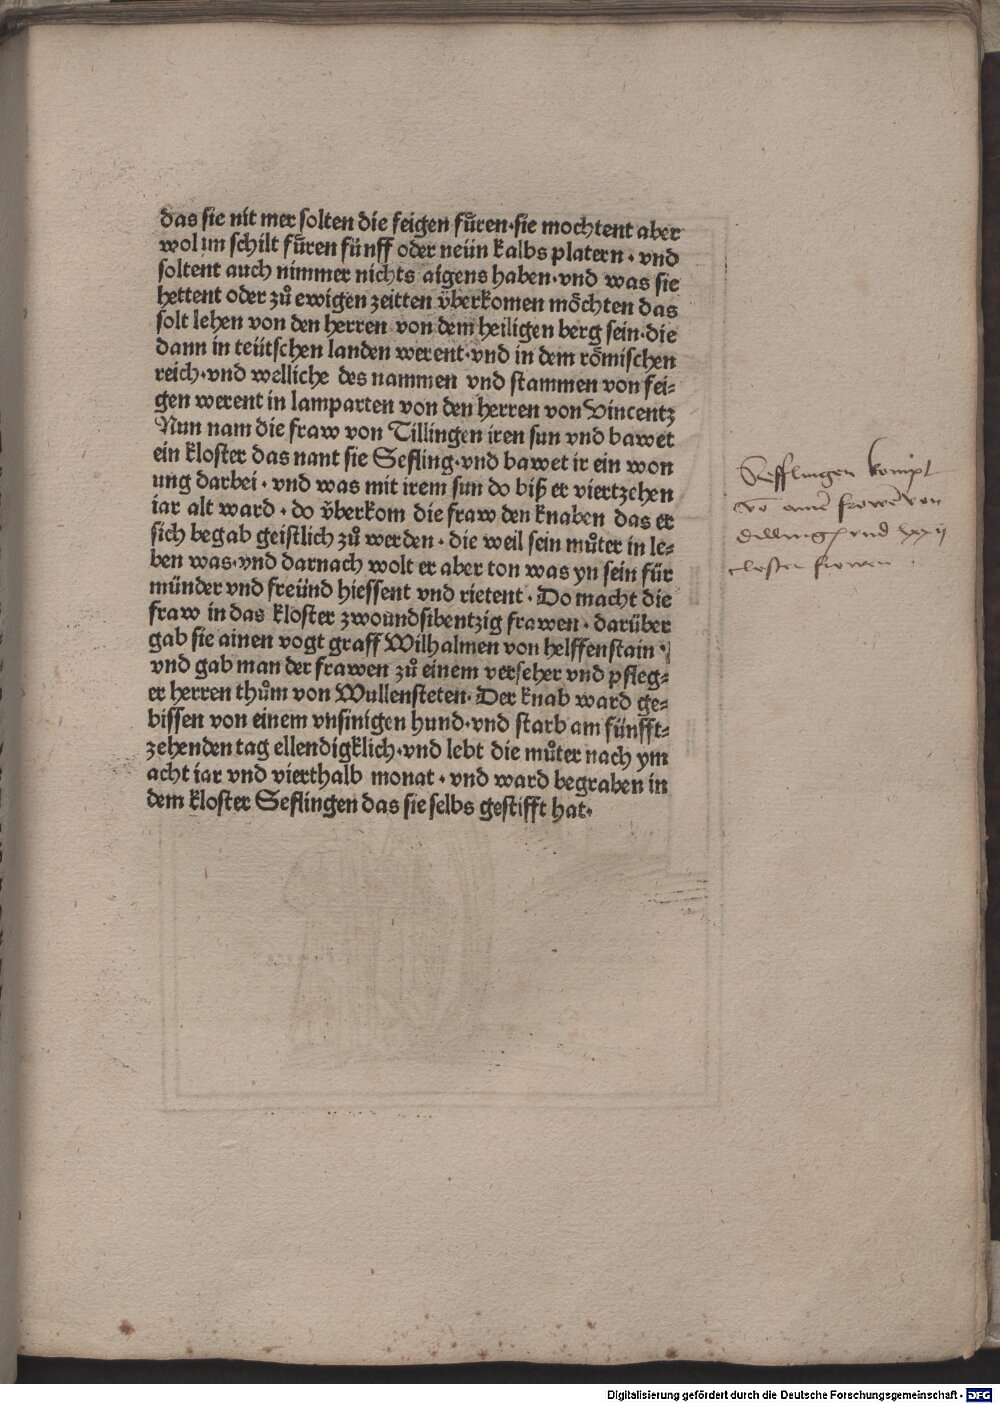 das sie nit mer solten die feigen fuͤren·sie mochtent aber
wol im schilt fuͤren fünff oder neün kalbs platern · vnd
soltent auch nimmer nichts aigens haben·vnd was sie
hettent oder zuͦ ewigen zeitten v̈berkomen moͤchten das
solt lehen von den herren von dem heiligen berg sein·die
dann in teütschen landen werent·vnd in dem roͤmischen
reich·vnd welliche des nammen vnd stammen von fei⸗
gen werent in lamparten von den herren von Vincentz
Nun nam die fraw von Tillingen iren sun vnd bawet
ein kloster das nant sie Sefling·vnd bawet ir ein won
ung darbei · vnd was mit irem sun do biß er viertzehen
iar alt ward · do v̈berkom die fraw den knaben das er
sich begab geistlich zuͦ werden · die weil sein muͦter in le⸗
ben was·vnd darnach wolt er aber ton was yn sein für
münder vnd freünd hiessent vnd rietent · Do macht die
fraw in das kloster zwoundsibentzig frawen · darüber
gab sie ainen vogt graff Wilhalmen von helffenstain ·
vnd gab man der frawen zuͦ einem verseher vnd pfleg⸗
er herren thuͦm von Wullensteten· Der knab ward ge⸗
bissen von einem vnsinigen hund·vnd starb am fünfft⸗
zehenden tag ellendigklich·vnd lebt die muͦter nach ym
acht iar vnd vierthalb monat · vnd ward begraben in
dem kloster Seflingen das sie selbs gestifft hat·
Sefflingen kompt
vō ainer frowē von
dilling vnd lxxij
closter frowen
Digitalisierung gefördert durch die Deutsche Forschungsgemeinschaft - DFG